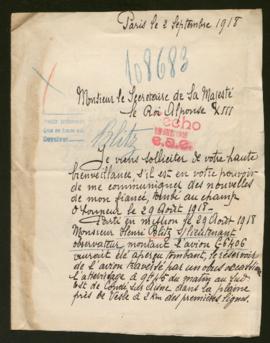 Paris le 2 Septembre 1918
108683
Monsieur le Secretaire de Sa Majesté
le Roi Alphonse XIII
echo
e.a.e.
Blitz
Je viens solliciter de votre haute
bienveillance s'il est en votre pouvoir
de me communiquer des nouvelles
de mon fiancé, tombé au champ
d'honneur le 29 Août 1918-
Parti en mission le 29 Août 1918
Monsieur Henri Blitz S/lieutenant
observateur montant l'avion 66406
auront été aperçu tombant, le réservoir
de l'avion traversé par un obus occasionna
l'atterrissage à 9h45 du matin au Sud
Est de Condé sur Aisne dans la plaine
près de Vesle à 2 Km des premières lignes.